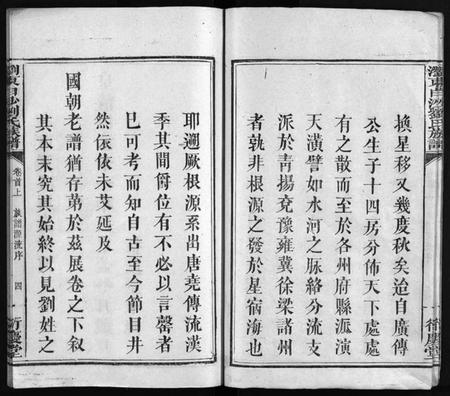 瀏東白沙劉氏族譜
換星移又幾度秋矣迨自廣傳
公生子十四房分佈天下處處
有之散而至於各州府縣派演
天潢譬如水河之脉絡分流支
派於青揚兗豫雍冀徐梁諸州
者孰非根源之發於星宿海也
衍慶堂
耶遡厥根源系出唐堯傳流漢
季其間爵位有不必以言罄者
巳可考而知自古至今節目井
然依依未艾延及
國朝老譜猶存第於茲展卷之下叙
其本末究其始終以見劉姓之
瀏東白沙劉氏族譜
卷首上 族譜源流序 四
衍慶堂